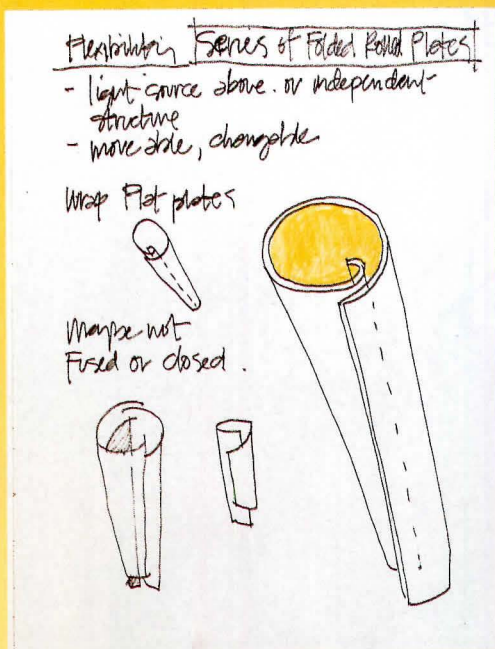 Flexibility Series of Folded Rolled Plates
- light source above. or independent
structure
- moveable, changable
Wrap Flat plates
Maybe not
Fused or closed.